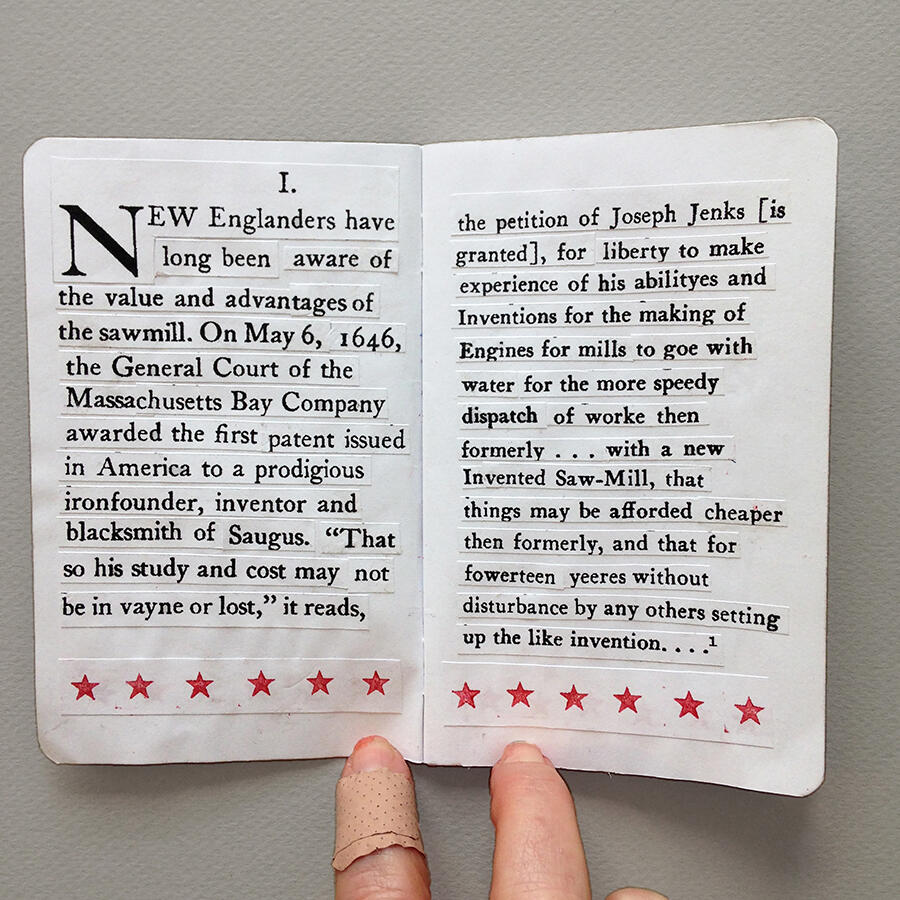 I.
NEW Englanders have
long been aware of
the value and advantages of
the sawmill. On May 6, 1646,
the General Court of the
Massachusetts Bay Company
awarded the first patent issued
in America to a prodigious
ironfounder, inventor and
blacksmith of Saugus. “That
so his study and cost may not
be in vayne or lost,” it reads,
the petition of Joseph Jenks [is
granted], for liberty to make
experience of his abilityes and
Inventions for the making of
Engines for mills to goe with
water for the more speedy
dispatch of worke then
formerly . . . with a new
Invented Saw-Mill, that
things may be afforded cheaper
then formerly, and that for
fowerteen yeeres without
disturbance by any others setting
up the like invention. . . .¹